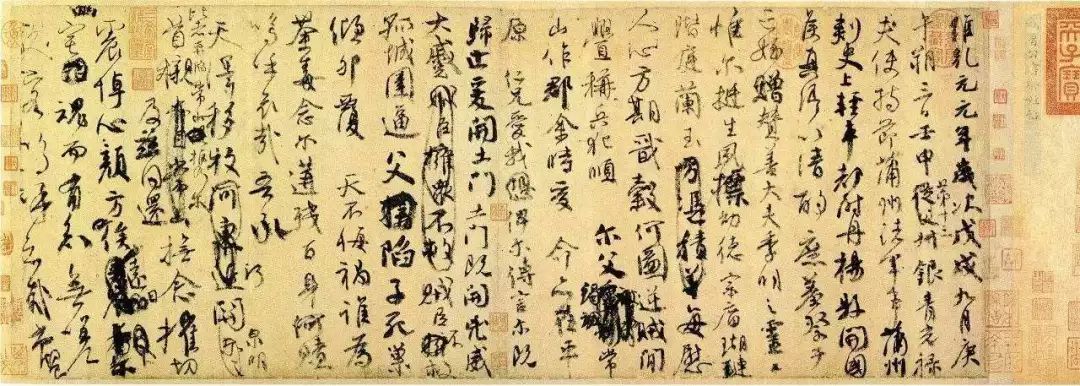 維乾元元年歲次戊戌九月庚
午朔三日壬申第十三叔銀青光祿
夫使持節蒲州諸軍事蒲州
刺史上輕車都尉丹楊縣開國
侯真卿以清酌庶羞祭于
亡姪贈贊善大夫季明之靈曰
惟爾挺生夙標幼德宗廟瑚璉
階庭蘭玉每慰
人心方期戩穀何圖逆賊閒
釁稱兵犯順
爾父竭誠常
山作郡余時受命亦在平
原仁兄愛我俾爾傳言爾既
歸止爰開土門土門既開凶威
大蹙賊臣不救
孤城圍逼父陷子死巢
傾卵覆天不悔禍誰為
荼毒念爾遘殘百身何贖
嗚呼哀哉吾承
天澤移牧河關泉明
比者再陷常山攜爾
首櫬及茲同還
撫念摧切
震悼心顏方俟遠日
宅魂而有知無嗟
久客嗚呼哀哉尚饗